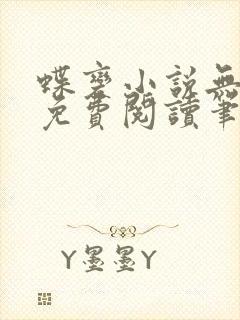 蝶变小說無
免費閱讀筆
Y墨墨Y